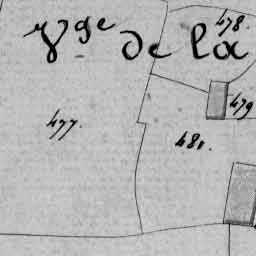 478.
Vge de la
479
477.
481.